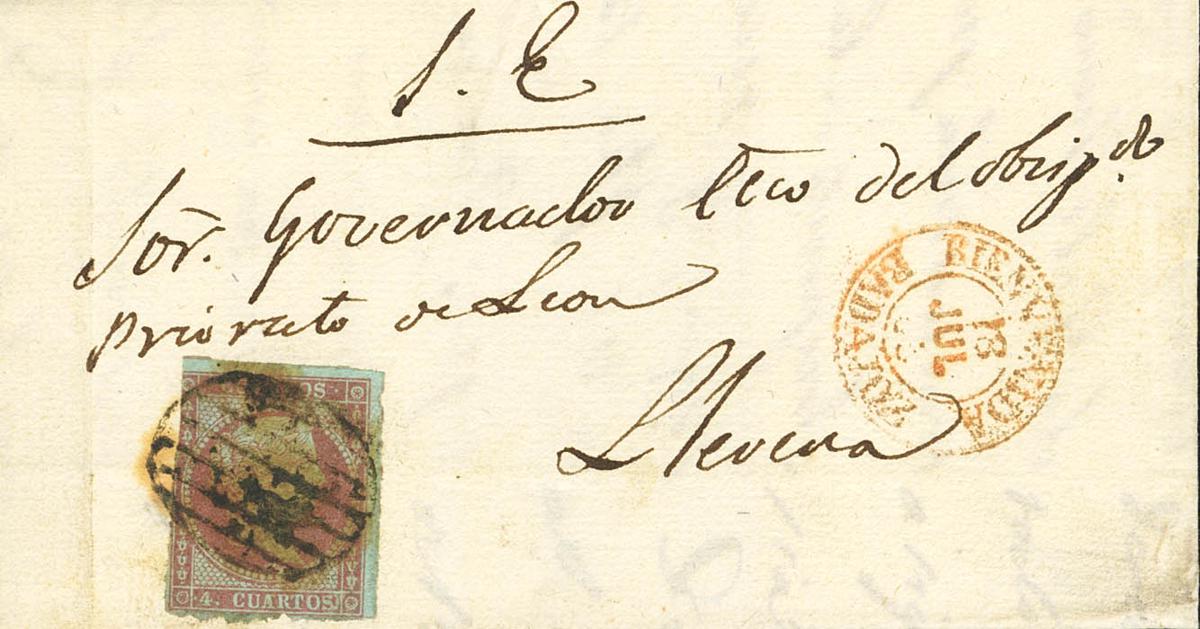 S. E
Sor. Governador Ecco del obisp.do
Priorato de Leon
Llerena
BIENVENIDA
BADAJOZ
13
JUL
4. CUARTOS.